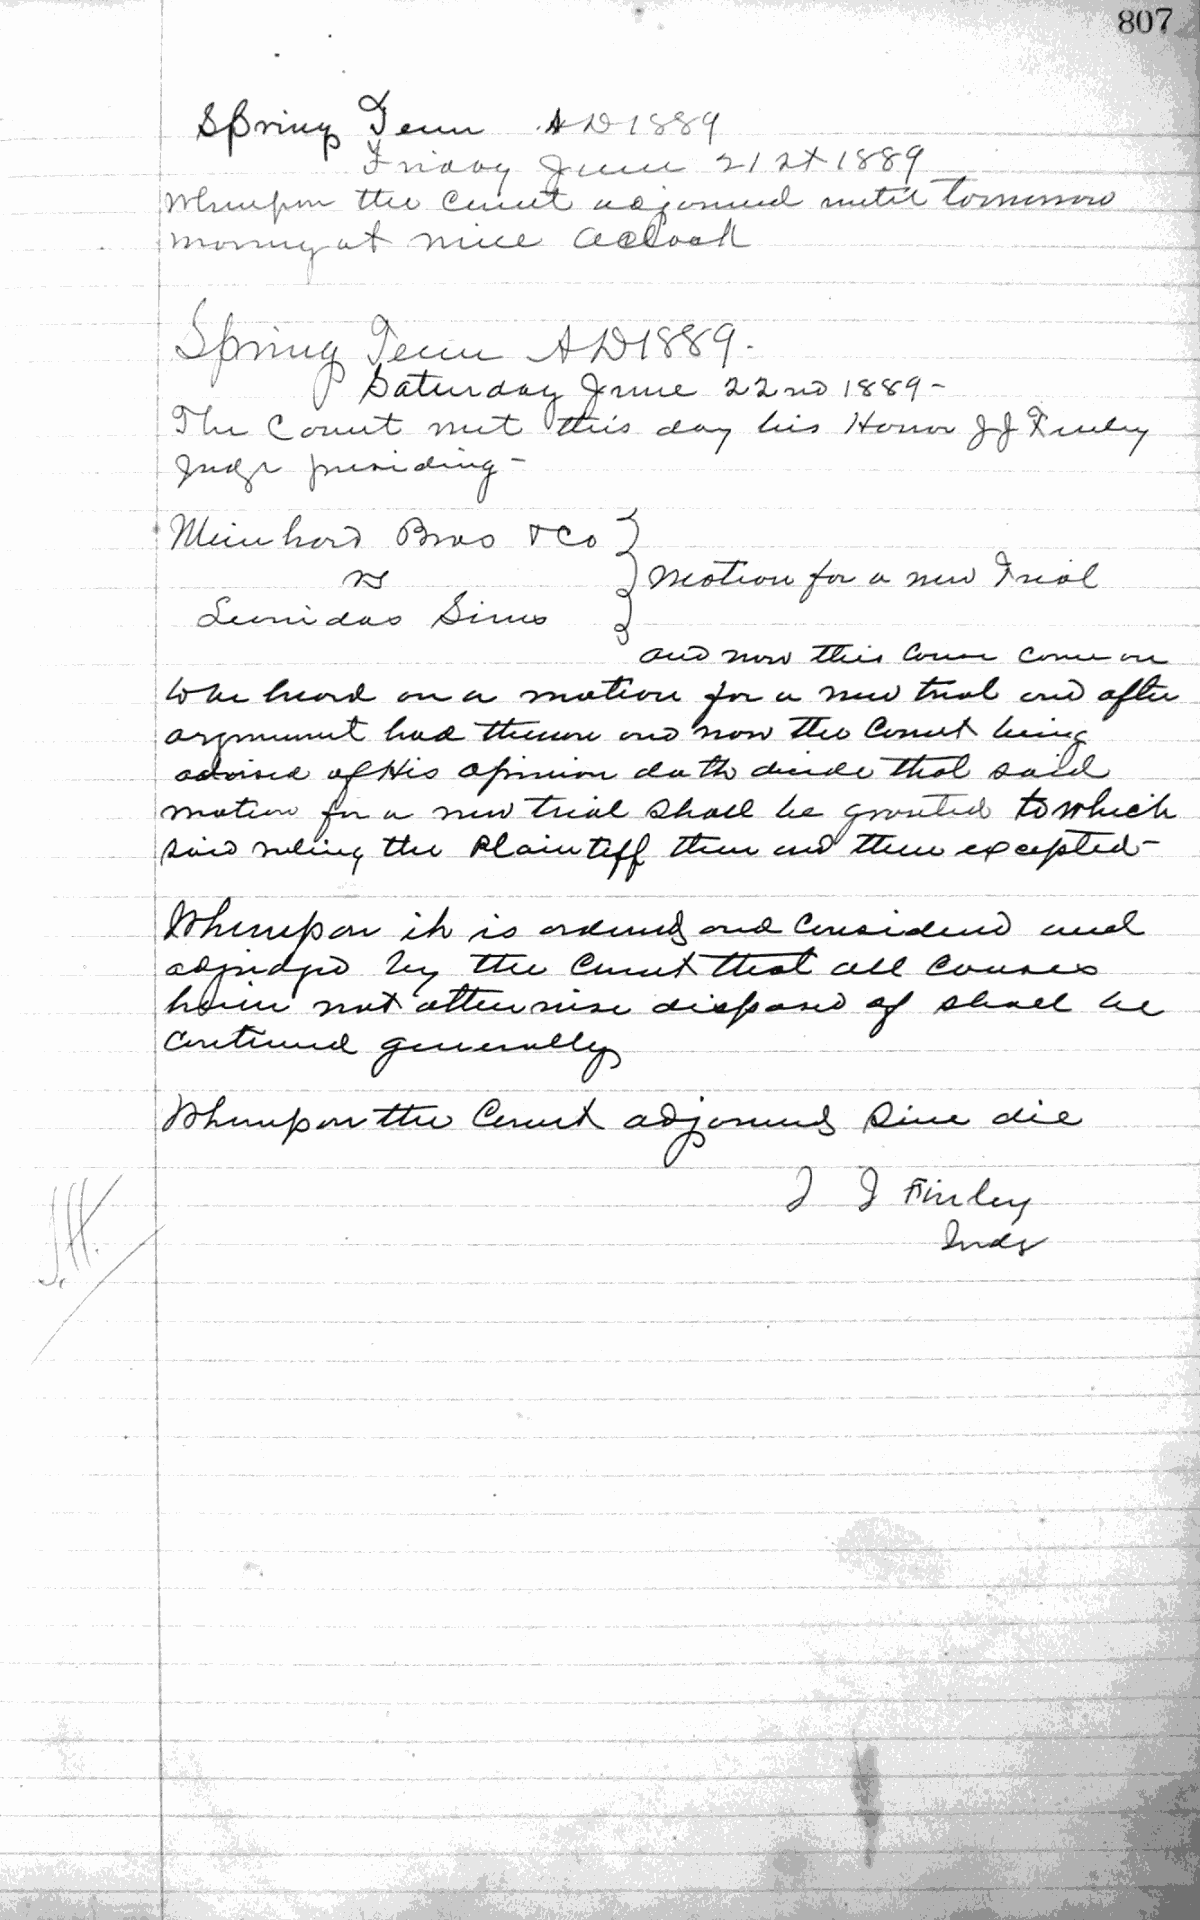 807
Spring Term AD 1889
Friday June 21st 1889
Whereupon the Court adjourned until tomorrow
morning at nine oclock
Spring Term AD 1889.
Saturday June 22nd 1889-
The Court met this day his Honor J J Finley
Judge presiding-
Meinhard Bros & Co
vs
Motion for a new Trial
Leonidas Sims
and now this Cause come on
to be heard on a motion for a new trial and after
argument had thereon and now the Court being
advised of His opinion doth decide that said
motion for a new trial shall be granted to which
said ruling the Plaintiff then and there excepted-
Whereupon it is ordered and Considered and
adjudged by the Court that all Causes
herein not otherwise disposed of shall be
Continued generally
Whereupon the Court adjourned Sine die
J J Finley
Judge